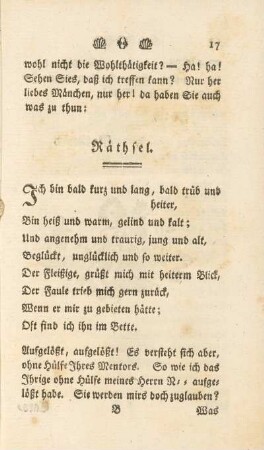 17
wohl nicht die Wohlthätigkeit? — Ha! ha!
Sehen Sies, daß ich treffen kann? Nur her
liebes Mänchen, nur her! da haben Sie auch
was zu thun:
Räthsel.
Ich bin bald kurz und lang, bald trüb und
heiter,
Bin heiß und warm, gelind und kalt;
Und angenehm und traurig, jung und alt,
Beglückt, unglücklich und so weiter.
Der Fleißige, grüßt mich mit heiterm Blick,
Der Faule trieb mich gern zurück,
Wenn er mir zu gebieten hätte;
Oft find ich ihn im Bette.
Aufgelößt, aufgelößt! Es versteht sich aber,
ohne Hülfe Ihres Mentors. So wie ich das
Ihrige ohne Hülfe meines Herrn N,, aufge-
lößt habe. Sie werden mirs doch zuglauben?
B
Was